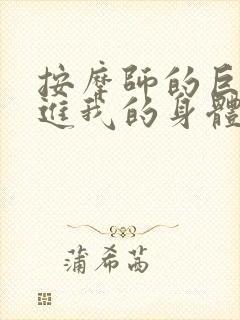 按摩師的巨
進我的身體
蒲希茜